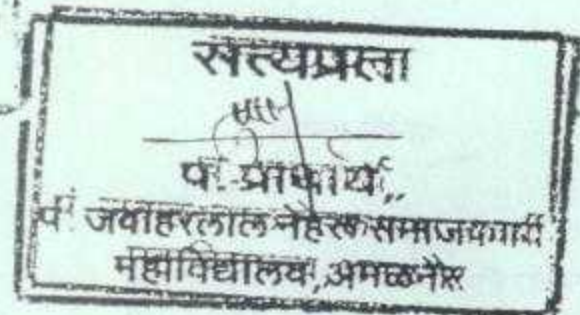 सत्यप्रत
प्र. प्राचार्य,
पं. जवाहरलाल नेहरू समाजकार्य
महाविद्यालय, अमळनेर